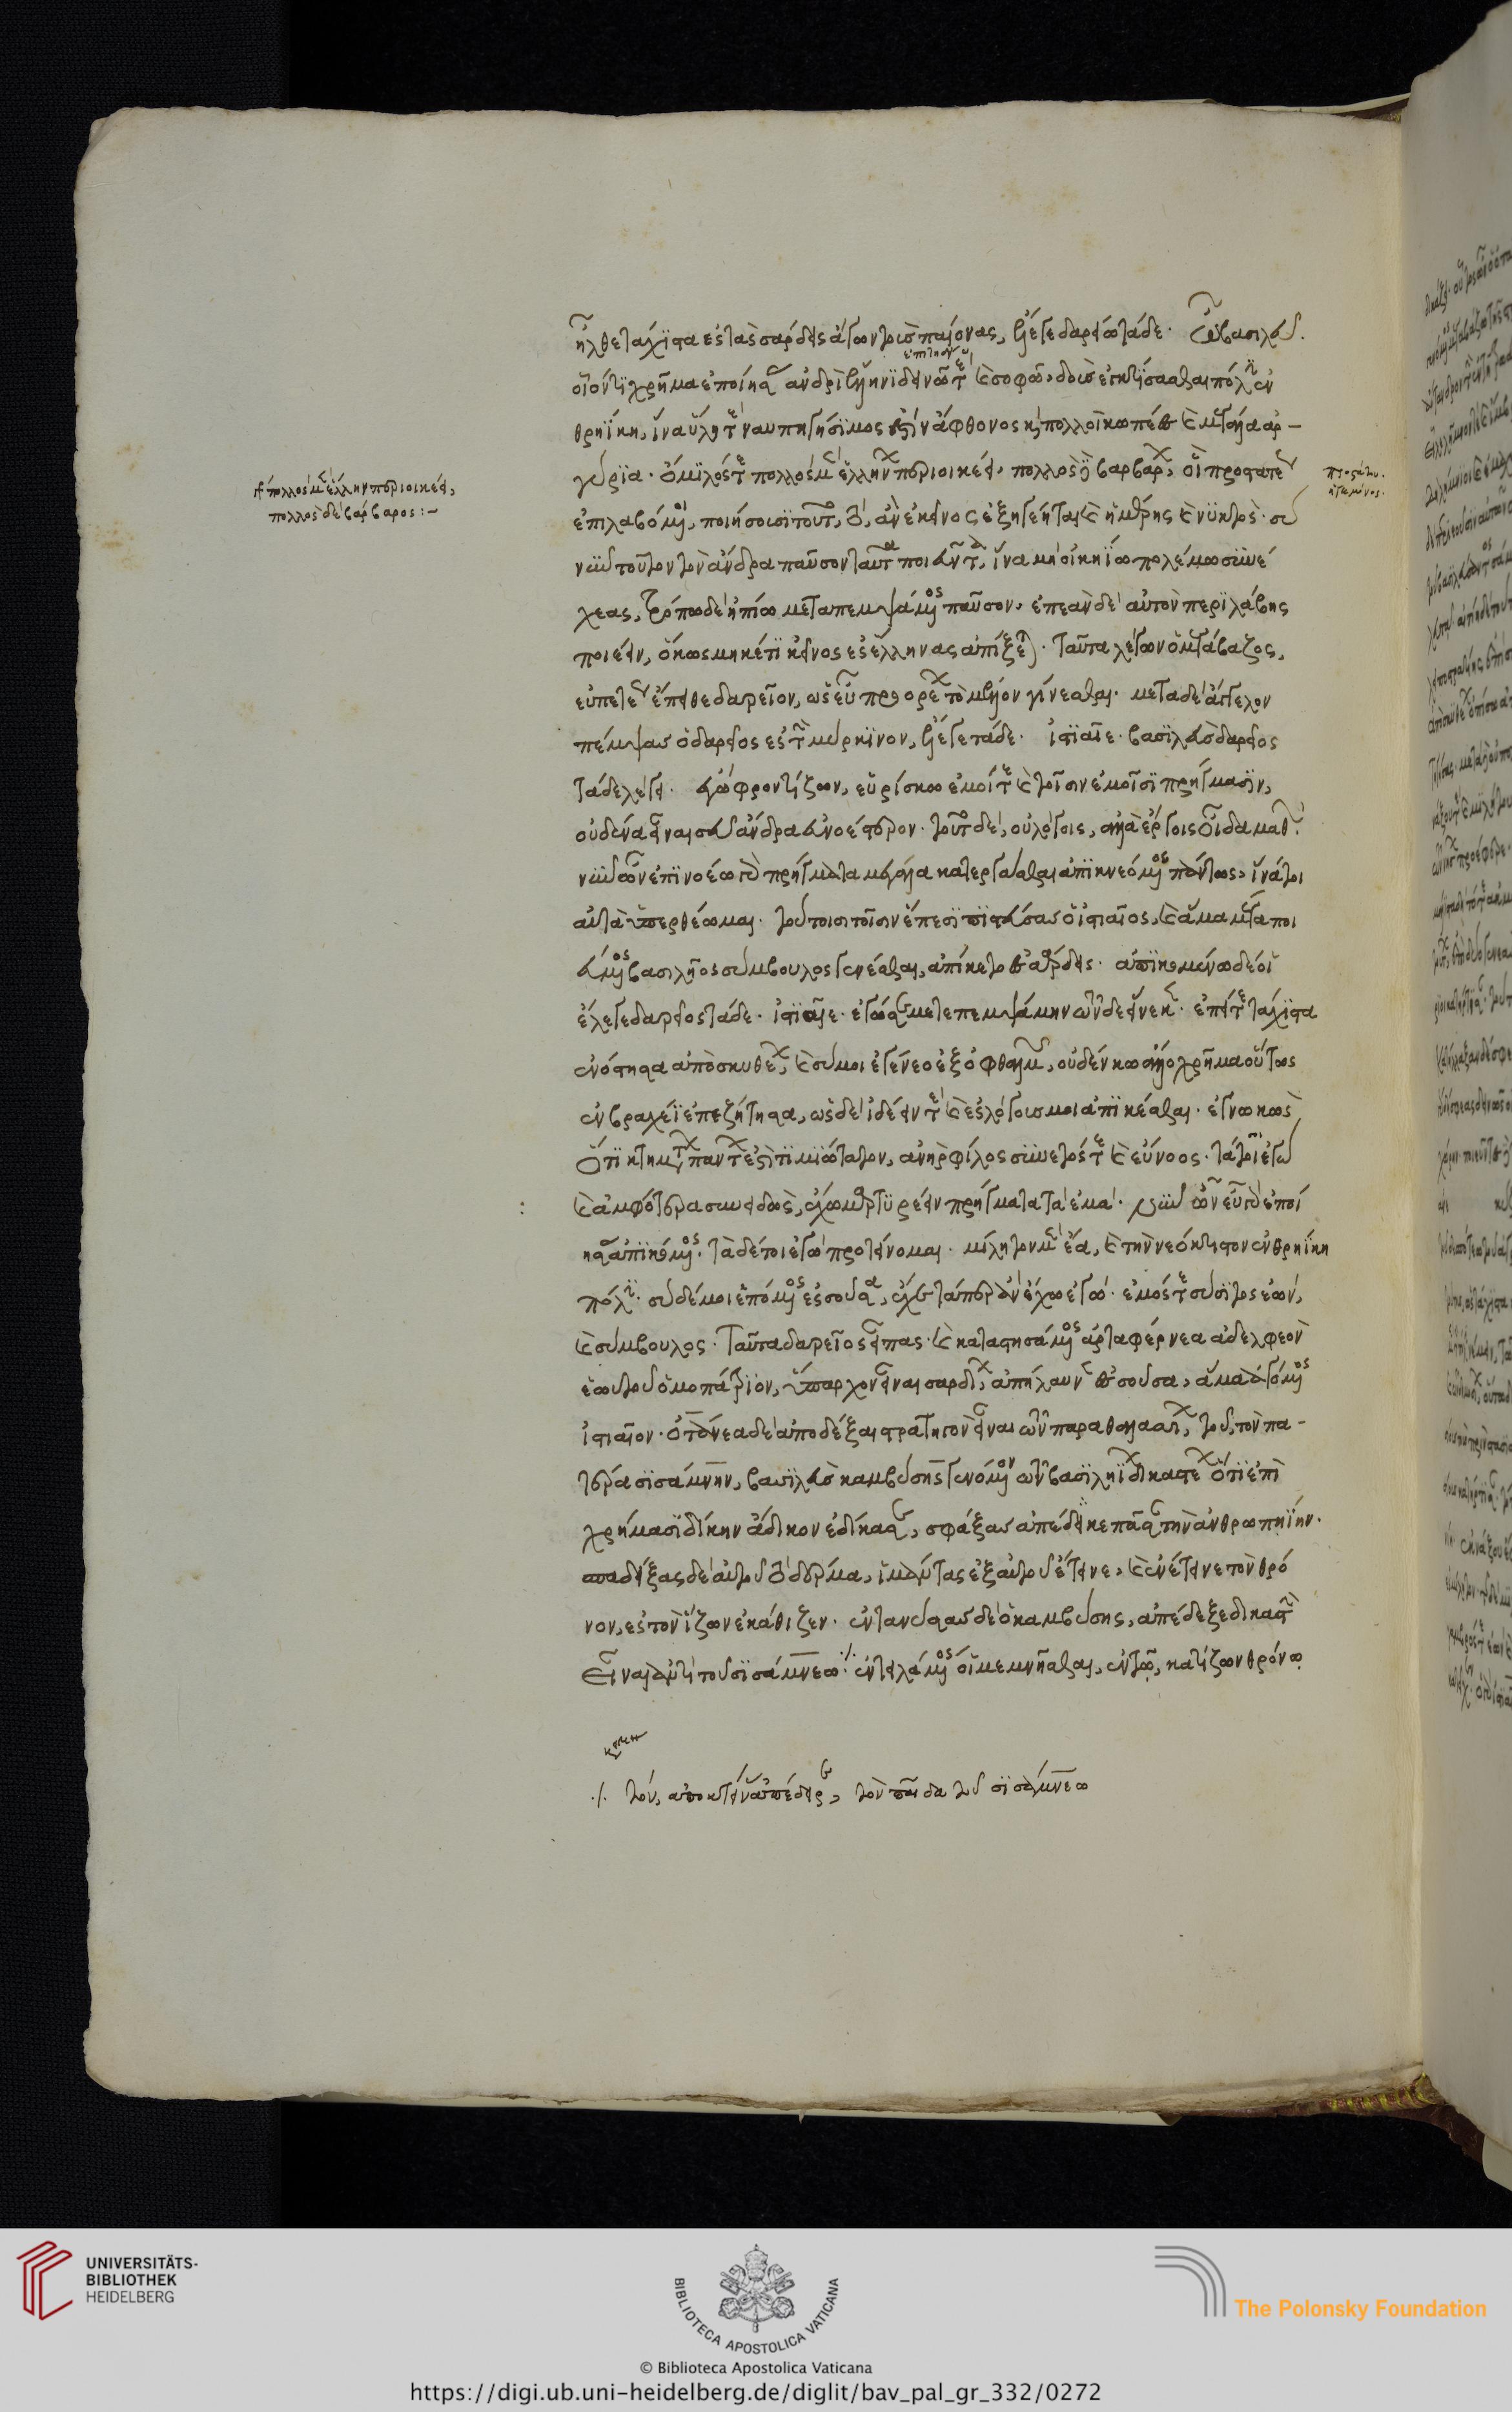 ἦλθε τάχιστα ἐς τὰς σάρδεις ἄγων τοὺς παίονας, ἔλεγε δαρείω τάδε· ὦ βασιλεῦ.
οἷόν τι χρῆμα ἐποίησας ἀνδρὶ ἕλληνι δεινῶ τὲ καὶ σοφῶ, δοὺς ἐγκτίσασθαι πόλιν ἐν
θρηίκη, ἵνα ὕλη τὲ ναυπηγήσιμός ἐστιν ἄφθονος καὶ πολλοὶ κωπέες καὶ μέταλλα ἀρ-
γύρια· ὅμιλός τε πολλὸς μὲν ἕλλην περιοικέει, πολλὸς δὲ βάρβαρος, οἳ προστάτεω
πολλὸς μὲν ἕλλην περιοικέει,
πολλὸς δὲ βάρβαρος:-
ἐπιλαβόμενοι, ποιήσουσι τοῦτο, τὸ, ἂν ἐκεῖνος ἐξηγέηται καὶ ἡμέρης καὶ νυκτὸς· σὺ
νῦν τοῦτον τὸν ἄνδρα παῦσον ταῦτα ποιεῦντα, ἵνα μὴ οἰκηίω πολέμω συνέ
χεαι, τρόπω δὲ ἠπίω μεταπεμψάμενος παῦσον, ἐπεὰν δὲ αὐτὸν περιλάβης
ποιέειν, ὅκως μηκέτι κεῖνος ἐς ἕλληνας ἀπίξεται· ταῦτα λέγων ὁ μεγάβαζος,
εὐπετέως ἔπειθε δαρεῖον, ὡς εὖ προορέων τὸ μέλλον γίνεσθαι· μετὰ δὲ ἄγγελον
πέμψας ὁ δαρεῖος ἐς τὴν μύρκινον, ἔλεγε τάδε· ἱστιαῖε· βασιλεὺς δαρεῖος
τάδε λέγει· ἐγὼ φροντίζων, εὑρίσκω ἐμοί τε καὶ τοῖσιν ἐμοῖσι πρήγμασιν,
οὐδένα εἶναι σεῦ ἄνδρα εὐνοέστερον· τοῦτο δὲ, οὐ λόγοις, ἀλλὰ ἔργοις οἶδα μαθών·
νῦν ὦν ἐπινοέω γὰρ πρήγματα μεγάλα κατεργάσασθαι ἀπικνεόμενος πάντως, ἵνα τοι
αὐτὰ ὑπερθέωμαι· τούτοισι τοῖσιν ἔπεσι πιστεύσας ὁ ἱστιαῖος, καὶ ἅμα μέγα ποι
εύμενος βασιλῆος σύμβουλος γενέσθαι, ἀπίκετο ἐς σάρδεις· ἀπικομένω δέ οἱ
ἔλεγε δαρεῖος τάδε· ἱστιαῖε· ἐγώ σε μετεπεμψάμην τῶνδε εἵνεκεν· ἐπεί τε τάχιστα
ἐνόστησα ἀπὸ σκυθέων, καὶ σύ μοι ἐγένεο ἐξ ὀφθαλμῶν, οὐδέν κω ἄλλο χρῆμα οὕτως
ἐν βραχέϊ ἐπεζήτησα, ὡς δὲ ἰδέειν τὲ καὶ ἐς λόγους μοι ἀπικέσθαι· ἐγνωκὼς
ὅτι κτημάτων πάντων ἐστὶ τιμιώτατον, ἀνὴρ φίλος συνετός τε καὶ εὔνοος· τά τοι ἐγὼ
καὶ ἀμφότερα συνειδὼς, ἔχω μαρτυρέειν πρήγματα τὰ ἐμὰ· νῦν ὦν εὖ γὰρ ἐποί
ησας ἀπικόμενος· τάδε τοι ἐγὼ προτείνομαι· μίλητον μὲν ἔα, καὶ τὴν νεόκτιστον ἐν θρηίκη
πόλιν· σὺ δέ μοι ἑπόμενος ἐς σοῦσα, ἔχε τάπερ ἂν ἔχω ἐγὼ· ἐμός τε σύσιτος ἐὼν,
καὶ σύμβουλος· ταῦτα δαρεῖος εἴπας· καὶ καταστησάμενος ἀρταφέρνεα ἀδελφεὸν
ἑωυτοῦ ὁμοπάτριον, ὕπαρχον εἶναι σαρδίων, ἀπήλαυνε ἐς σοῦσα, ἅμα ἀγόμενος
ἱστιαῖον· ὀτάνεα δὲ ἀποδέξας στρατηγὸν εἶναι τῶν παραθαλασσίων, τοῦ, τὸν πα-
τέρα σισάμνην, βασιλεὺς καμβύσης γενόμενον τῶν βασιληίων δικαστέων ὅτι ἐπὶ
χρήμασι δίκην ἄδικον ἐδίκασε, σφάξας ἀπέδειρε πᾶσαν τὴν ἀνθρωπηίην·
σπαδίξας δὲ αὐτοῦ τὸ δέρμα, ἱμάντας ἐξ αὐτοῦ ἔταμε, καὶ ἐνέτεινε τὸν θρό
νον, ἐς τὸν ἵζων ἐκάθιζεν· ἐντανύσας δὲ ὁ καμβύσης, ἀπέδεξε δικαστὴν
εἶναι ἀντὶ τοῦ σισάμνεω ·/· ἐντειλάμενός οἱ μεμνῆσθαι, ἐν τῶ, κατίζων θρόνω
·/· τὸν, ἀποκτείνας ἀπέδειρε, τὸν παῖδα τοῦ σισάμνεω
UNIVERSITÄTS-
BIBLIOTHEK
HEIDELBERG
BIBLIOTECA APOSTOLICA VATICANA
The Polonsky Foundation
© Biblioteca Apostolica Vaticana
https://digi.ub.uni-heidelberg.de/diglit/bav_pal_gr_332/0272